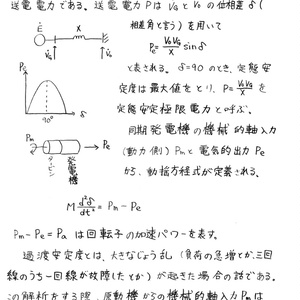 送電電力である。送電電力PはVGとVoの位相差δ(
相差角と言う)を用いて
Pe = VoVG/X sinδ
と表される。δ=90のとき、定態安
定度は最大値をとり、P=VoVG/Xを
定態安定極限電力と呼ぶ。
同期発電機の機械的軸入力
(動力側)Pmと電気的出力Pe
から、動揺方程式が定義される。
Ė
X
V̇G
V̇o
PG
90°
δ
Pm
Pe
タービン
発電機
M d²δ/dt² = Pm - Pe
Pm - Pe = Pa は回転子の加速パワーを表す。
過渡安定度とは、大きなじょう乱(負荷の急増とか、三回
線のうち一回線が故障したとか)が起きた場合の話である。
この解析をする際、原動機からの機械的軸入力Pmは